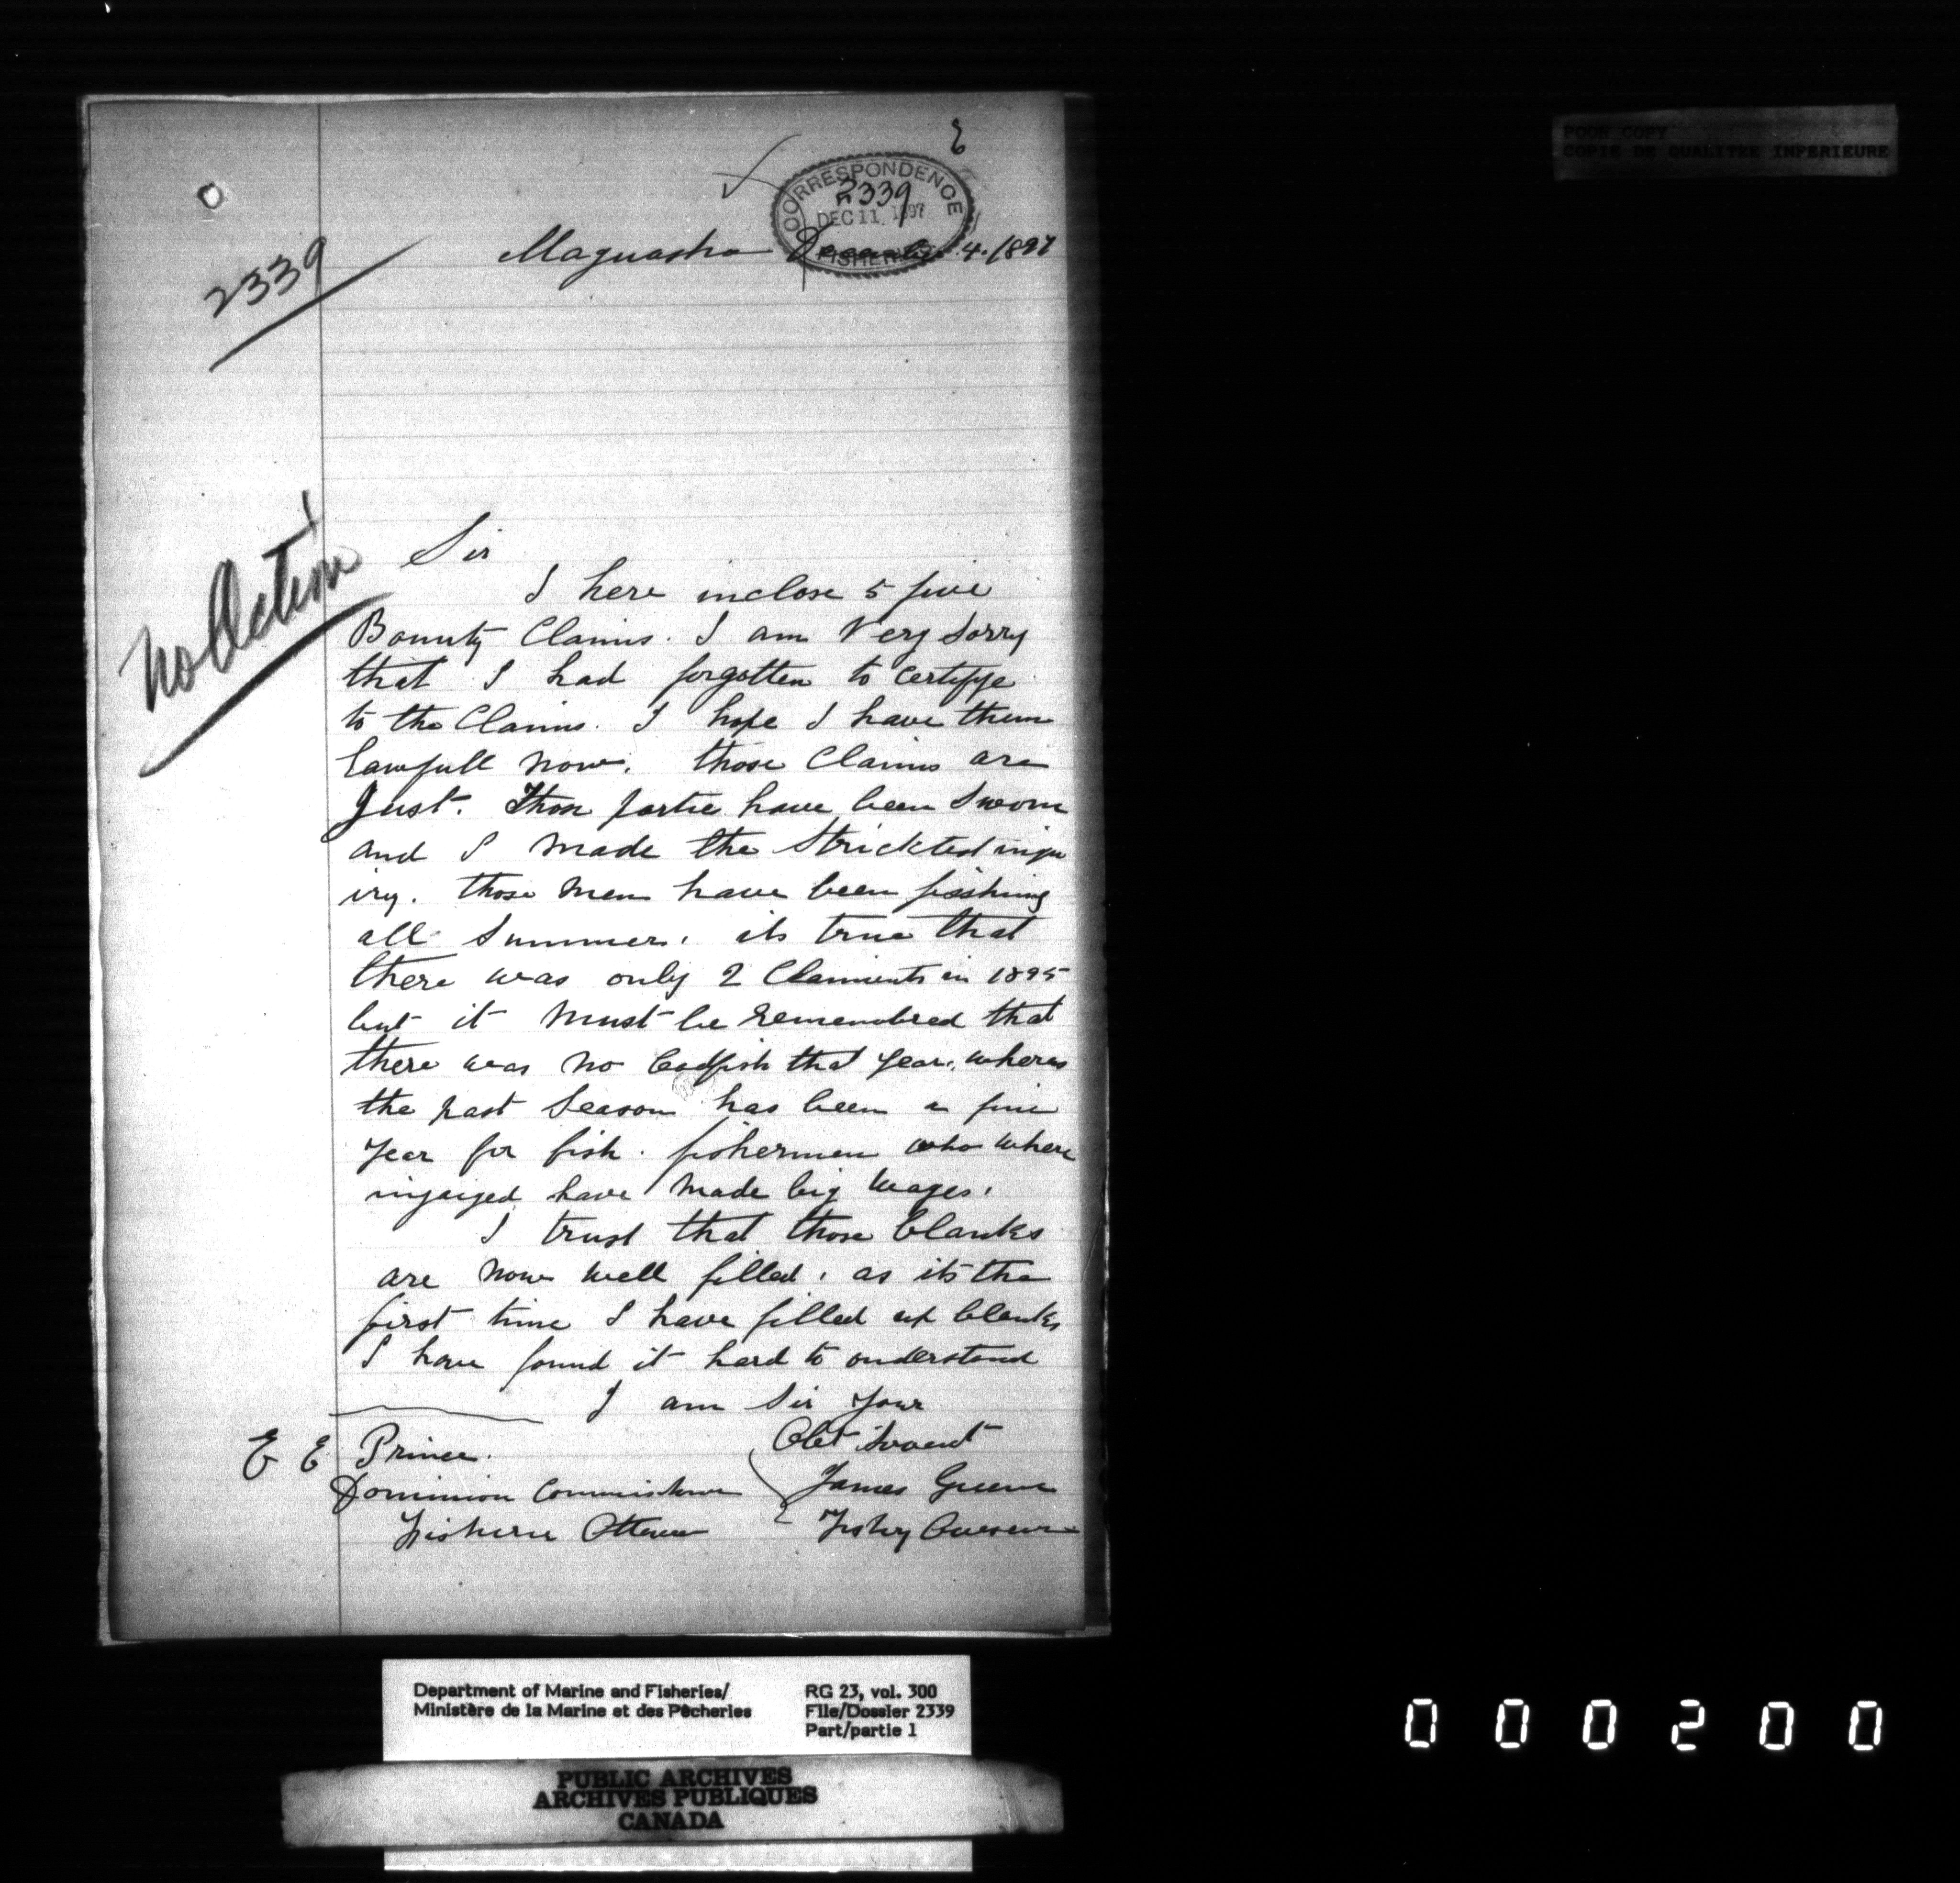 POOR COPY
COPIE DE QUALITEE INFERIEURE
E
CORRESPONDENCE
2339
DEC 11 1897
FISHERIES
2339
Maguasha December 4. 1897
No Action
Sir
I here inclose 5 five
Bounty Claims. I am Very Sorry
that I had forgotten to certifye
to the Claims. I hope I have them
Lawfull now. those Claims are
Just. Those partie have been Sworn
and I made the Stricktest inqu
iry. those men have been fisshing
all Summer. its true that
there was only 2 Claiments in 1895
but it must be remembred that
there was no Codfish that year, wheras
the past Season has been a fine
year for fish. fishermen who where
ingaiged have made big wages.
I trust that those blanks
are now well filled, as its the
first time I have filled up blanks
I have found it hard to onderstand
I am Sir your
Obt Srvant
James Greene
Fishry Overseer
E E Prince.
Dominion Commissioner
Fisherie Ottawa
Department of Marine and Fisheries/
Ministère de la Marine et des Pêcheries
RG 23, vol. 300
File/Dossier 2339
Part/partie 1
PUBLIC ARCHIVES
ARCHIVES PUBLIQUES
CANADA
000200